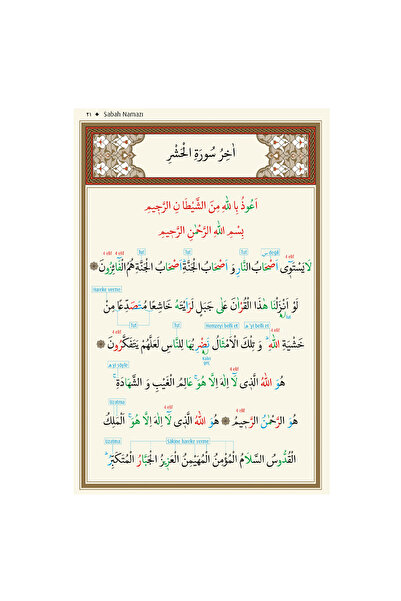 ٢١ ◆ Sabah Namazı
اٰخِرُ سُورَةِ الْحَشْرِ
اَعُوذُ بِاللّٰهِ مِنَ الشَّيْطَانِ الرَّجِيمِ
بِسْمِ اللّٰهِ الرَّحْمٰنِ الرَّحِيمِ
4 elif 4 elif tut tut s değil
لَا يَسْتَوِٓي اَصْحَابُ النَّارِ وَ اَصْحَابُ الْجَنَّةِ اَصْحَابُ الْجَنَّةِ هُمُ الْفَٓائِزُونَ
Hareke verme
لَوْ اَنْزَلْنَا هٰذَا الْقُرْاٰنَ عَلٰى جَبَلٍ لَرَاَيْتَهُ خَاشِعًا مُتَصَدِّعًا مِنْ
tut
tut tut Hemzeyi belli et h'yi belli et
خَشْيَةِ اللّٰهِ وَ تِلْكَ الْاَمْثَالُ نَضْرِبُهَا لِلنَّاسِ لَعَلَّهُمْ يَتَفَكَّرُونَ
4 elif
هُوَ اللّٰهُ الَّذِي لَٓا اِلٰهَ اِلَّا هُوَ عَالِمُ الْغَيْبِ وَ الشَّهَادَةِ
Uzatma 4 elif 4 elif
هُوَ الرَّحْمٰنُ الرَّحِيمُ هُوَ اللّٰهُ الَّذِي لَٓا اِلٰهَ اِلَّا هُوَ اَلْمَلِكُ
Uzatma Sakine hareke verme
الْقُدُّوسُ السَّلَامُ الْمُؤْمِنُ الْمُهَيْمِنُ الْعَزِيزُ الْجَبَّارُ الْمُتَكَبِّرُ